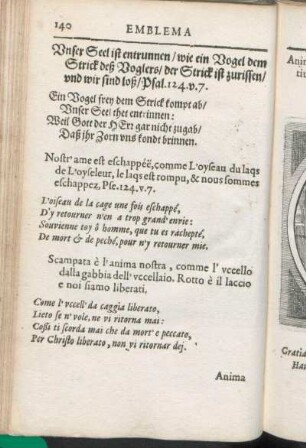 140 EMBLEMA
Vnser Seel ist entrunnen / wie ein Vogel dem
Strick deß Voglers / der Strick ist zurissen /
vnd wir sind loß / Psal. 124. v. 7.
Ein Vogel frey dem Strick kompt ab /
Vnser Seel thet entrinnen:
Weil Gott der HErr gar nicht zugab /
Daß ihr Zorn vns kondt brinnen.
Nostr' ame est eschappéë, comme L'oyseau du laqs
de L'oyseleur, le laqs est rompu, & nous sommes
eschappez, Pse. 124. v. 7.
L'oiseau de la cage une fois eschappé,
D'y retourner n'en a trop grand' envie:
Souvienne toy ô homme, que tu es rachepté,
De mort & de peché, pour n'y retourner mie.
Scampata è l'anima nostra, comme l' vccello
dalla gabbia dell' vccellaio. Rotto è il laccio
e noi siamo liberati.
Come l'vccell' da caggia liberato,
Lieto se n' vole, ne vi ritorna mai:
Cosi ti scorda mai che da mort' e peccato,
Per Christo liberato, non vi ritornar dej.
Anima
Gratia